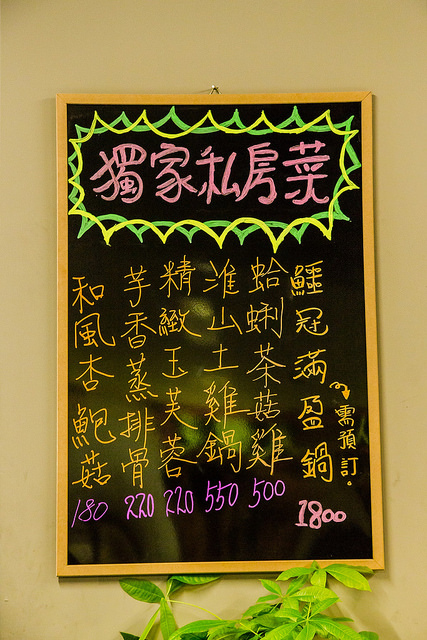 獨家私房菜
鱷冠滿盈鍋
需預訂。
1800
蛤蜊茶菇雞
500
淮山土雞鍋
550
精緻玉芙蓉
220
芋香蒸排骨
220
和風杏鮑菇
180